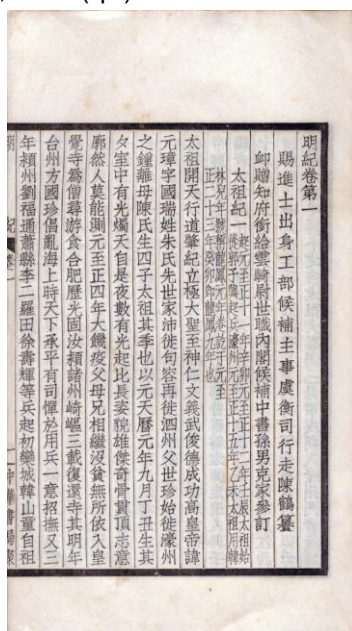 明紀卷第一
賜進士出身工部候補主事虞衡司行走陳鶴纂
卹贈知府銜給雲騎尉世職內閣候補中書孫男克家參訂
太祖紀一
起元至正十一年辛卯元至正十二年壬辰太祖始
從郭子興起兵濠州元至正十五年乙未太祖用韓
林兒年號稱龍鳳元年卷訖于元至
正二十三年癸卯卽龍鳳九年也
太祖開天行道肇紀立極大聖至神仁文義武俊德成功高皇帝諱
元璋字國瑞姓朱氏先世家沛徙句容再徙泗州父世珍始徙濠州
之鍾離母陳氏生四子太祖其季也以元天曆元年九月丁丑生其
夕室中有光燭天自是夜數有光起比長姿貌雄傑奇骨貫頂志意
廓然人莫能測元至正四年大饑疫父母兄相繼沒貧無所依入皇
覺寺爲僧尋游食合肥歷光固汝潁諸州崎嶇三載復還寺其明年
台州方國珍倡亂海上時天下承平有司憚於用兵一意招撫又三
年潁州劉福通蕭縣李二羅田徐壽輝等兵起初欒城韓山童自祖
紀
卷一
一中華書局聚